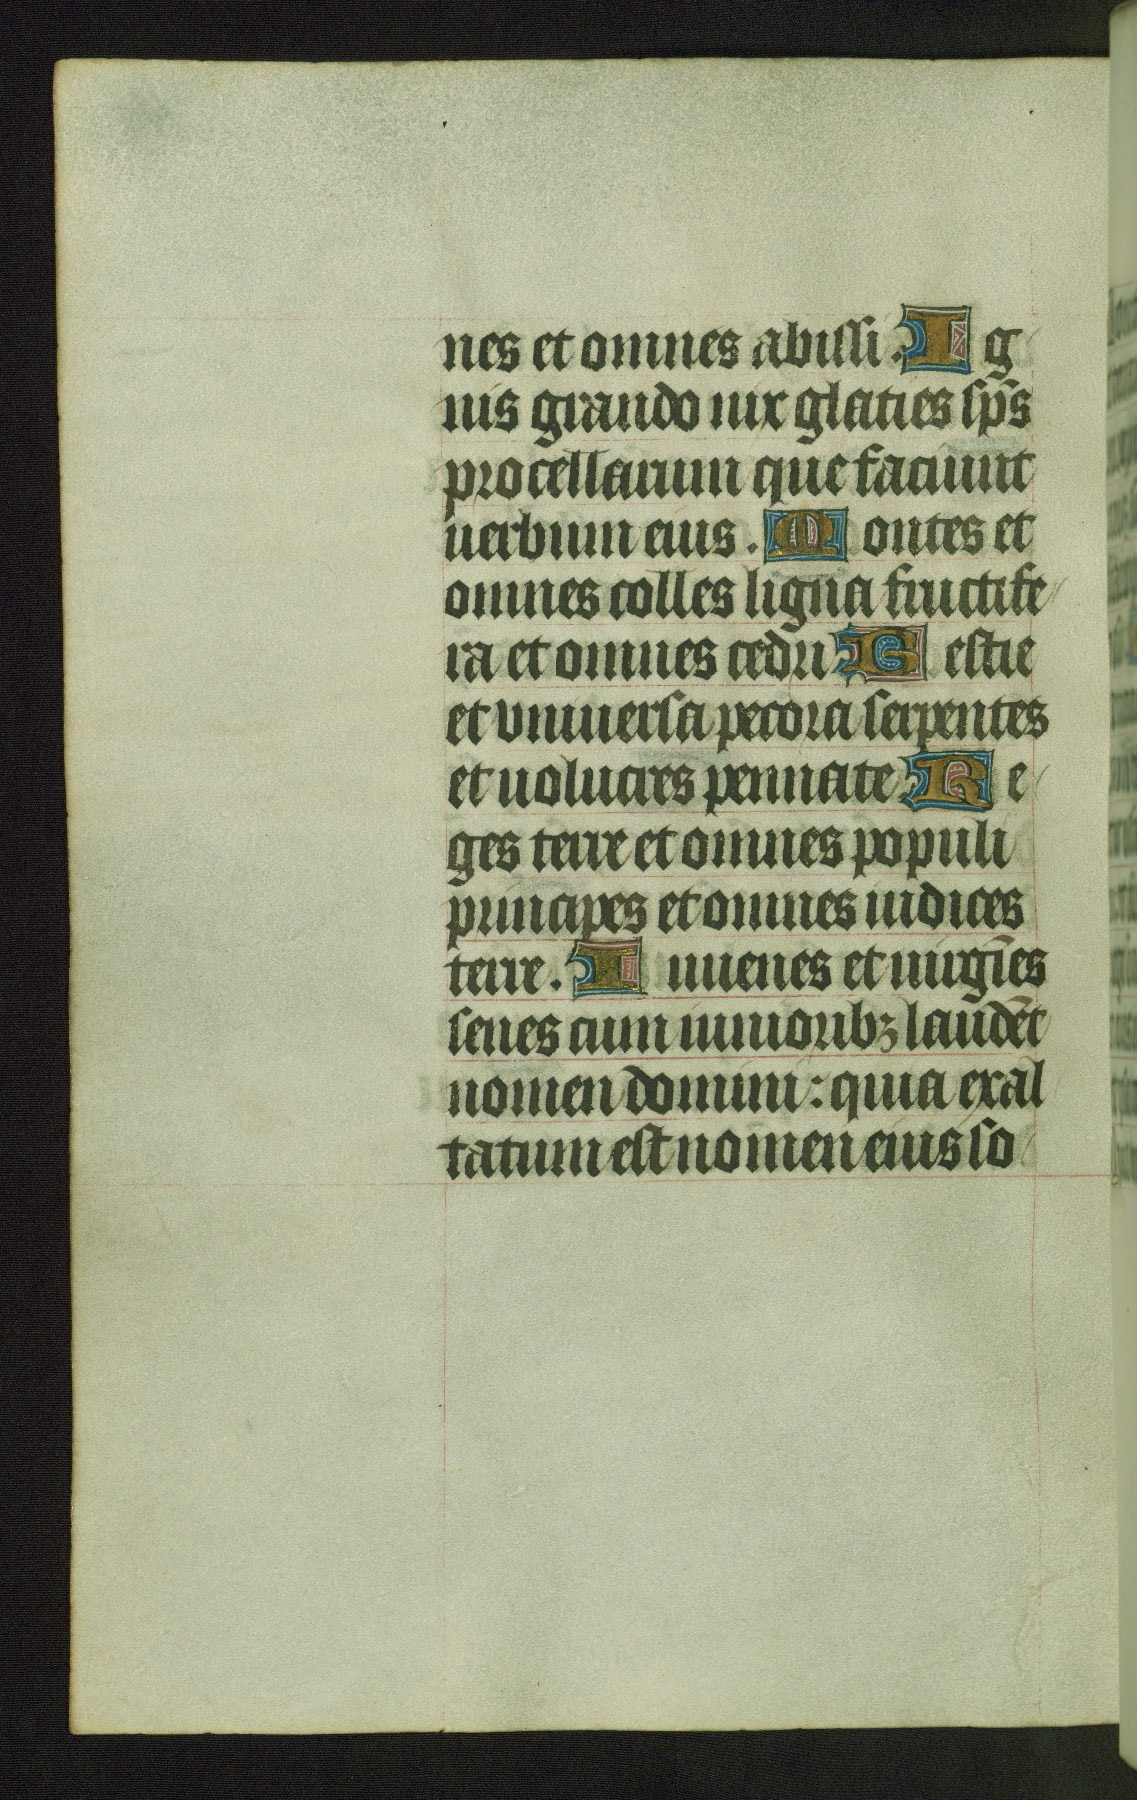 nes et omnes abissi. Ig
nis grando nix glaties sp̄s
procellarum que faciunt
uerbum eius. Montes et
omnes colles ligna fructife
ra et omnes cedri Bestie
et vniuersa pecora serpentes
et uolucres pennate Re
ges terre et omnes populi
principes et omnes iudices
terre. Iuuenes et uirgīes
senes cum iunioribꝫ laudēt
nomen domini: quia exal
tatum est nomen eius so